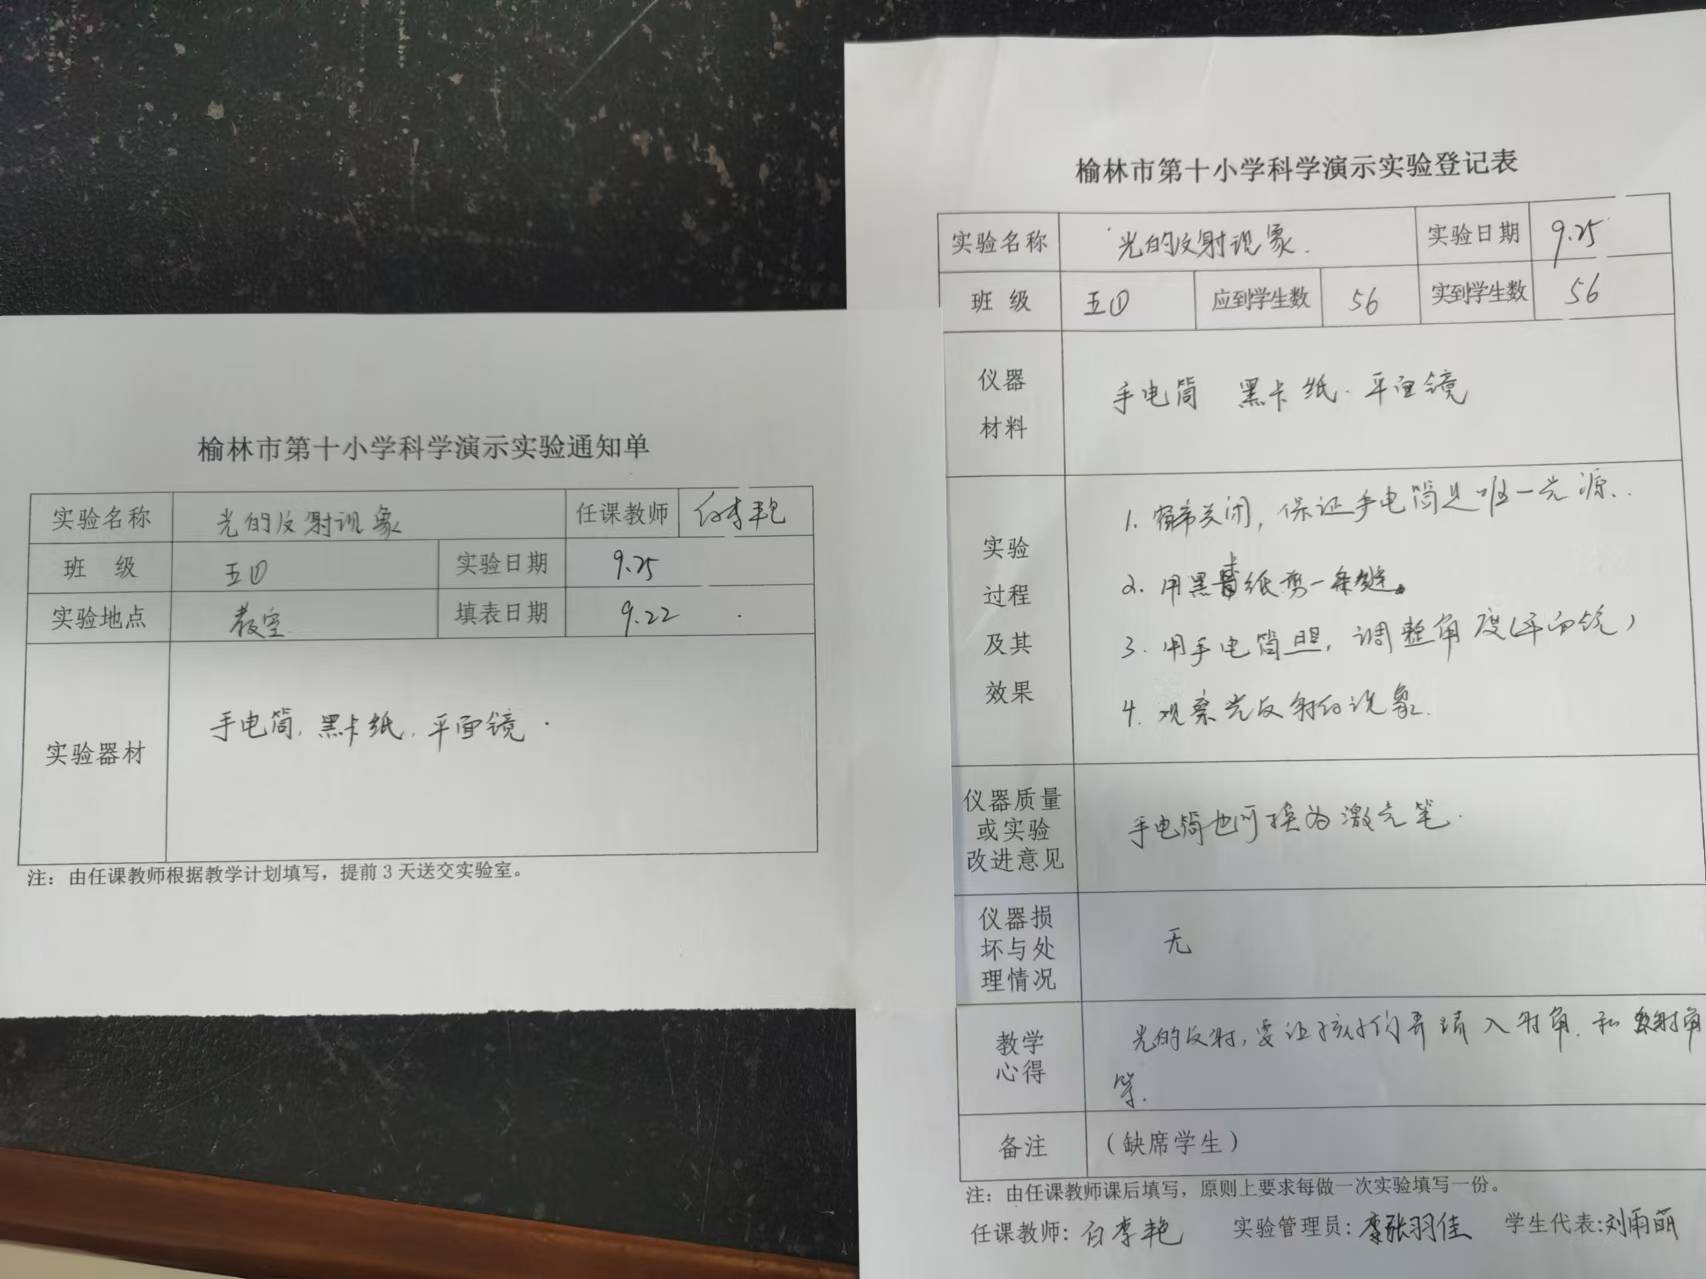 榆林市第十小学科学演示实验通知单
实验名称 光的反射现象 任课教师 白李艳
班 级 五① 实验日期 9.25
实验地点 教室 填表日期 9.22
实验器材 手电筒,黑卡纸,平面镜.
注：由任课教师根据教学计划填写，提前3天送交实验室。
榆林市第十小学科学演示实验登记表
实验名称 光的反射现象. 实验日期 9.25
班 级 五① 应到学生数 56 实到学生数 56
仪器
材料
手电筒 黑卡纸. 平面镜
实验
过程
及其
效果
1. 窗帘关闭, 保证手电筒是唯一光源.
2. 用黑卡纸剪一条缝。
3. 用手电筒照, 调整角度(平面镜)
4. 观察光反射的现象.
仪器质量
或实验
改进意见
手电筒也可换为激光笔.
仪器损
坏与处
理情况
无
教学
心得
光的反射, 要让孩子们弄清入射角. 和反射角
等.
备注 （缺席学生）
注：由任课教师课后填写，原则上要求每做一次实验填写一份。
任课教师: 白李艳 实验管理员: 张羽佳 学生代表: 刘雨萌